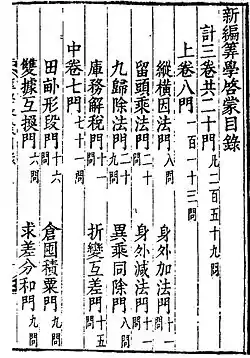 新編筭學啓蒙目錄
計三卷共二十門 凡二百五十九問
上卷八門 一百一十三問
縱橫因法門 八問 身外加法門 十一問
留頭乘法門 二十問 身外減法門 十一問
九歸除法門 二十九問 異乘同除門 八問
庫務解稅門 十一問 折變互差門 十五問
中卷七門 七十一問
田畝形段門 十六問 倉囤積粟門 九問
雙據互換門 六問 求差分和門 九問